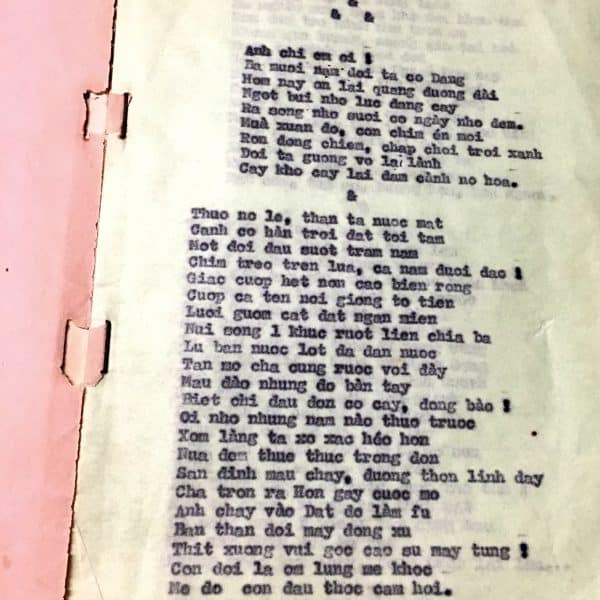 &
& &
Anh chi em oi !
Ba muoi năm doi ta co Dang
Hom nay on lai quang duong dài
Ngot bui nho luc dang cay
Ra song nho suoi co ngày nho dem.
Muà xuan do, con chim én moi
Ron dong chiem, chap choi troi xanh
Doi ta guong vo lai lành
Cay kho cay lai dam cành no hoa.
&
Thuo no le, than ta nuoc mat
Canh co hàn troi dat toi tam
Mot doi dau suot tram nam
Chim treo tren lua, ca nam duoi dao !
Giac cuop het non cao bien rong
Cuop ca ten noi giong to tien
Luoi guom cat dat ngan mien
Nui song 1 khuc ruot lien chia ba
Lu ban nuoc lot da dan nuoc
Tan mo cha cung ruoc voi dày
Mau dào nhung do bàn tay
Biet chi dau don co cay, dong bào !
Oi nho nhung nam nào thuo truoc
Xom làng ta xo xac héo hon
Nua dem thue thuc trong don
San dinh mau chay, duong thon linh day
Cha tron ra Hon gay cuoc mo
Anh chay vào Dat do làm fu
Ban than doi may dong xu
Thit xuong vui goc cao su may tung !
Con doi la om lung me khoc
Me do con dau thoc cam hoi.